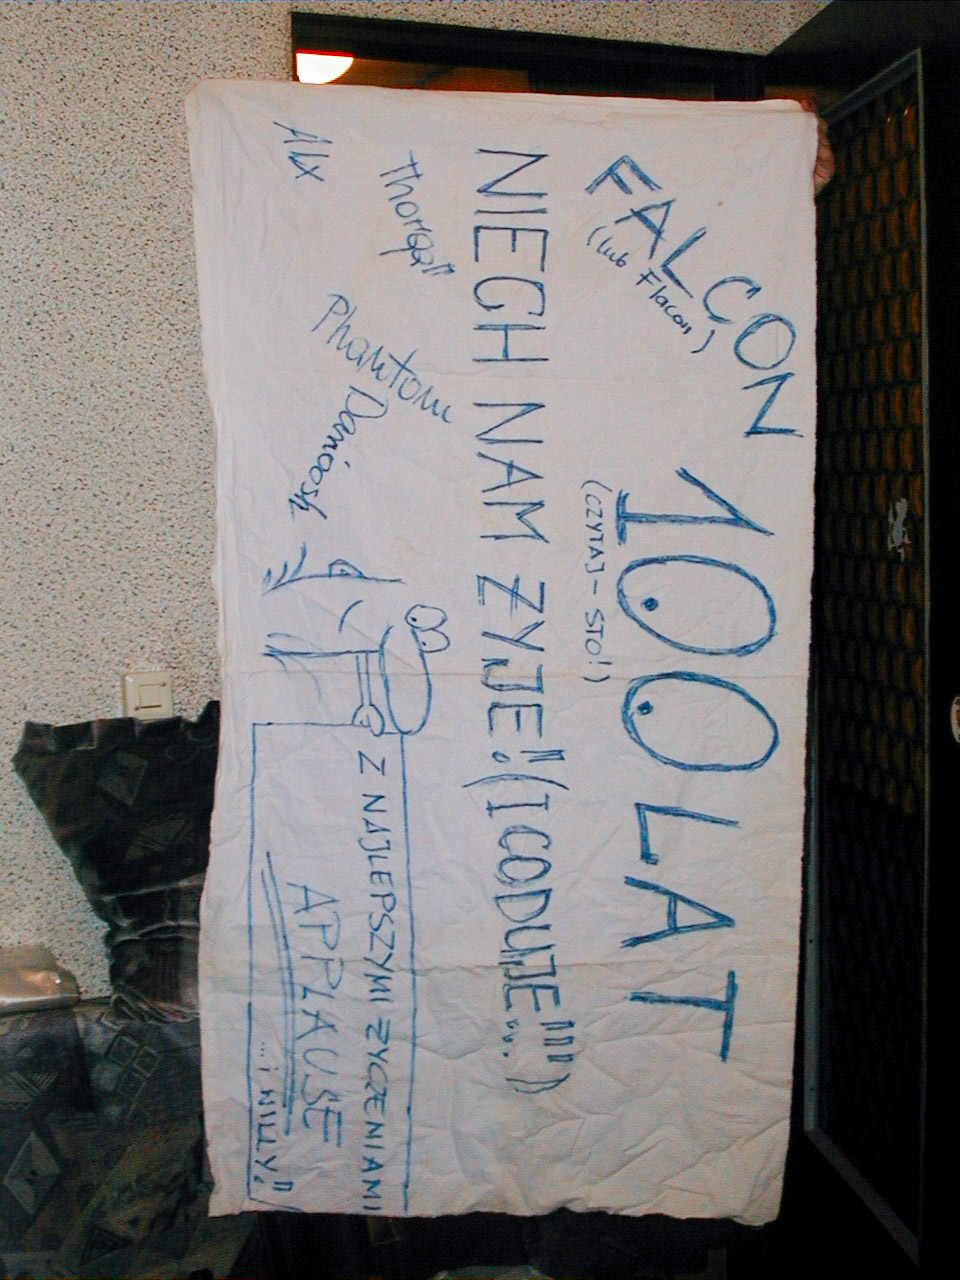 FALCON 100 LAT
(lub Flacon)
(CZYTAJ - STO!)
NIECH NAM ŻYJE! (I CODUJE"...)
Thorgal
Alx
Phantom
Danoosh
Z NAJLEPSZYMI ŻYCZENIAMI
APPLAUSE
...i NILLY.